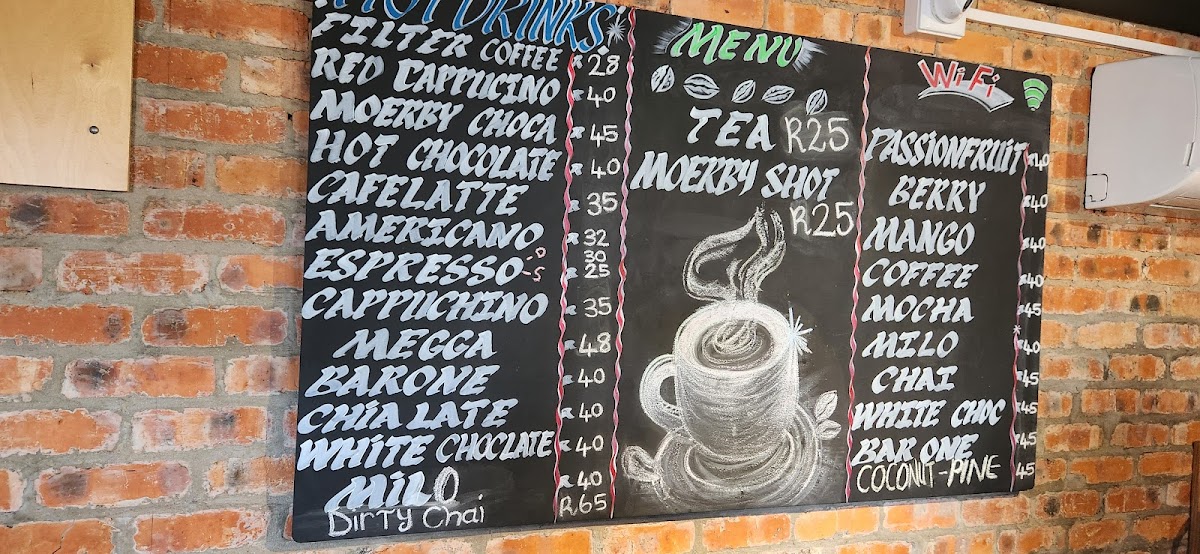 HOT DRINKS
FILTER COFFEE R 28
RED CAPPUCINO R 40
MOERBY CHOCA R 45
HOT CHOCOLATE R 40
CAFE LATTE R 35
AMERICANO R 32
ESPRESSO -D 30
-S R 25
CAPPUCHINO R 35
MEGGA R 48
BARONE R 40
CHIA LATE R 40
WHITE CHOCLATE R 40
MILO R 40
DIRTY Chai R.65
MENU
TEA R25
MOERBY SHOT
R25
WiFi
PASSIONFRUIT R40
BERRY R40
MANGO R40
COFFEE R40
MOCHA R45
MILO R40
CHAI R45
WHITE CHOC R45
BAR ONE R45
COCONUT-PINE 45